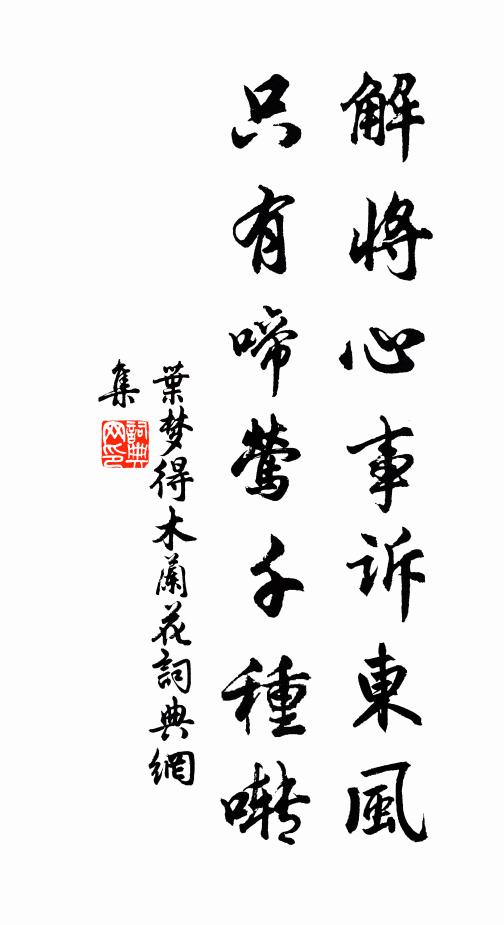 解將心事訴東風
只有啼鶯千種囀
葉梦得木蘭花詞典網
集
詞典網印